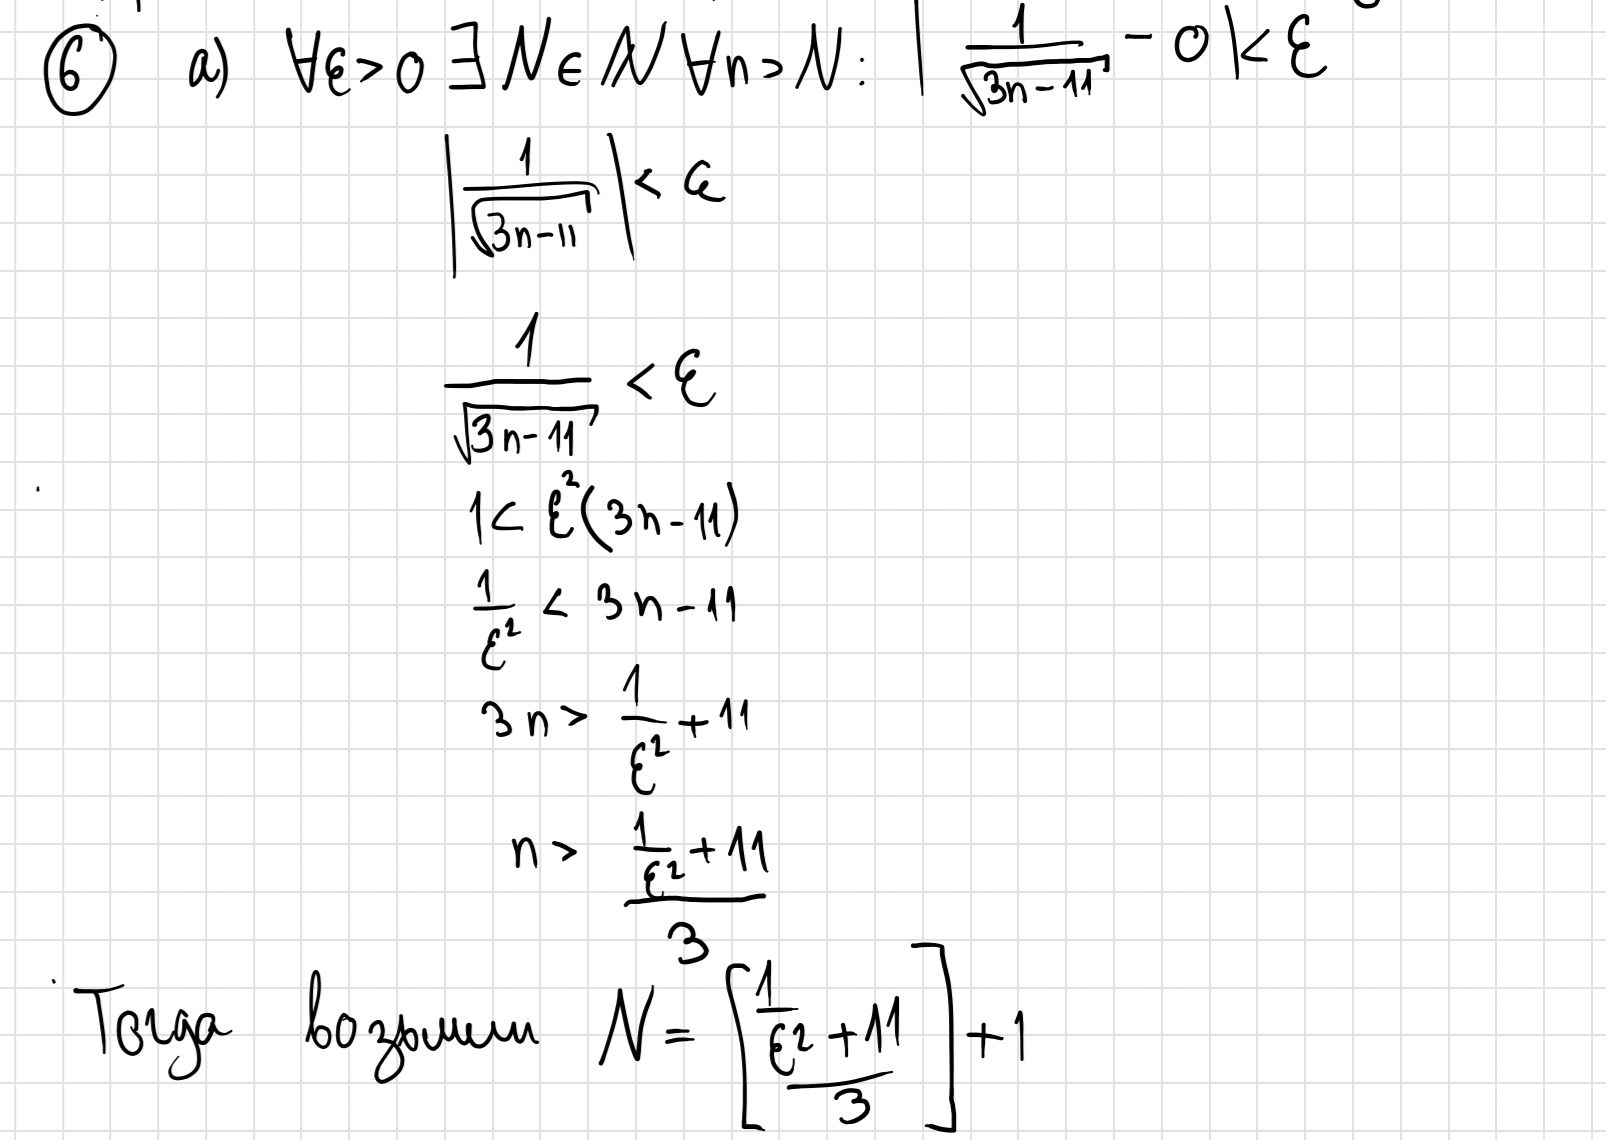 ⑥ a) ∀ε>0 ∃N∈ℕ ∀n>N: |1/√(3n-11) - 0|<ε
|1/√(3n-11)| < ε
1/√(3n-11) < ε
1< ε²(3n-11)
1/ε² < 3n-11
3n> 1/ε² + 11
n> (1/ε² + 11)/3
Тогда возьмем N = [(1/ε² + 11)/3] + 1